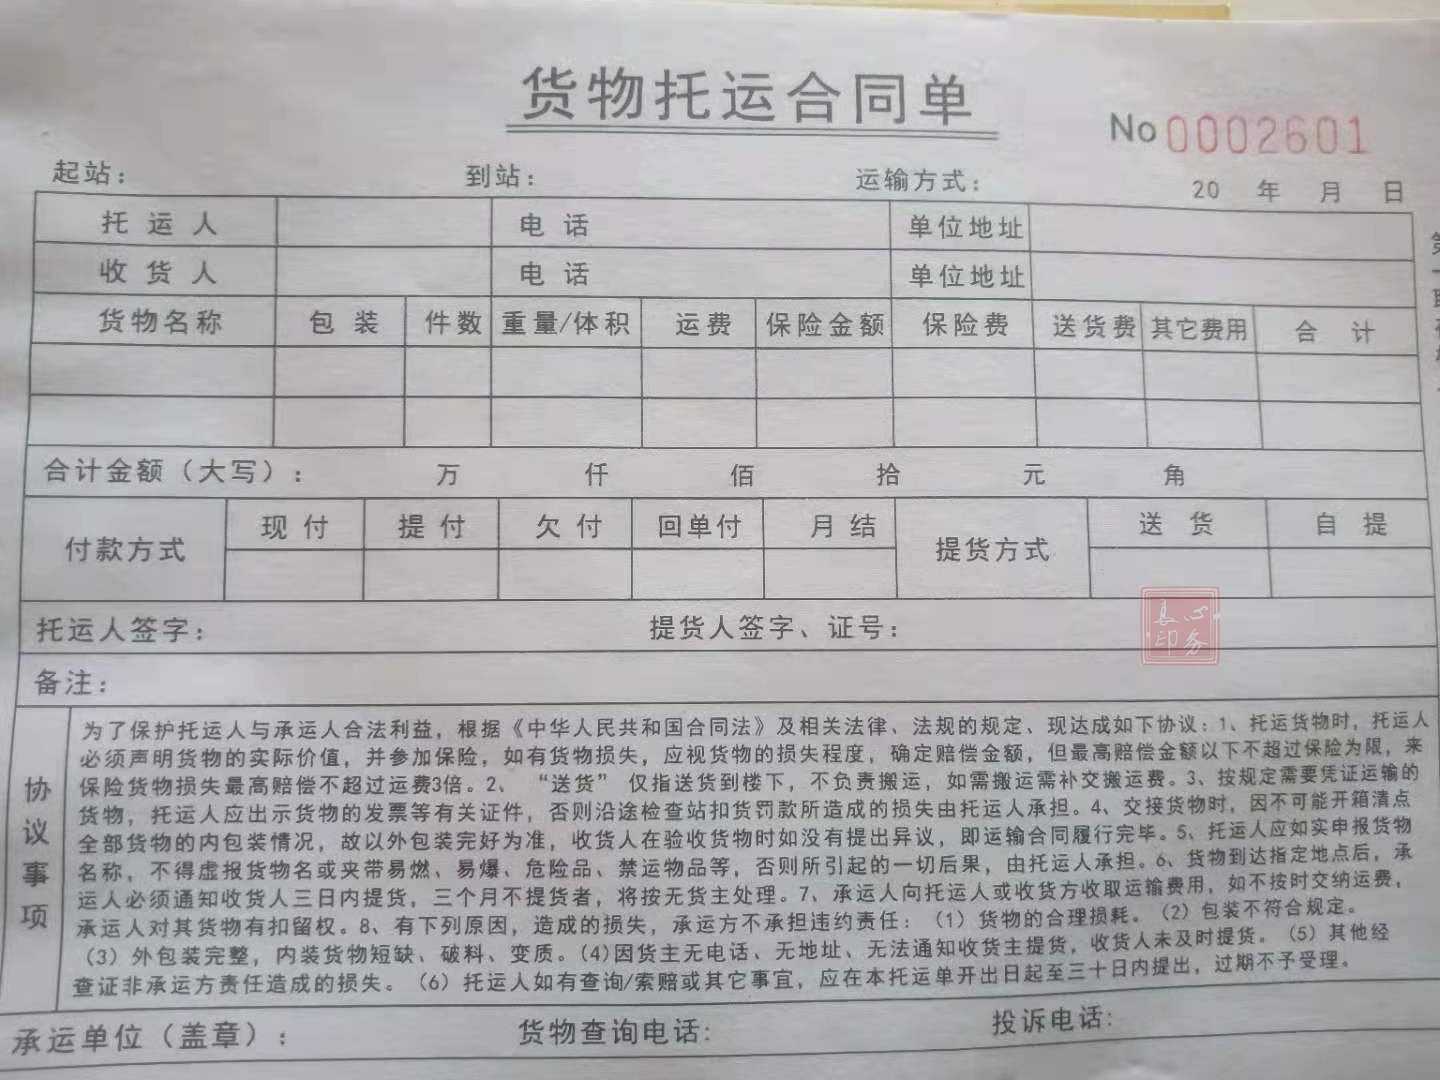 货物托运合同单
No 0002601
起站： 到站： 运输方式： 20 年 月 日
托运人 电话 单位地址
收货人 电话 单位地址
货物名称 包装 件数 重量/体积 运费 保险金额 保险费 送货费 其它费用 合计
合计金额（大写）： 万 仟 佰 拾 元 角
付款方式 现付 提付 欠付 回单付 月结 提货方式 送货 自提
托运人签字： 提货人签字、证号：
良心
印务
备注：
协议事项
为了保护托运人与承运人合法利益，根据《中华人民共和国合同法》及相关法律、法规的规定、现达成如下协议：1、托运货物时，托运人
必须声明货物的实际价值，并参加保险，如有货物损失，应视货物的损失程度，确定赔偿金额，但最高赔偿金额以下不超过保险为限，来
保险货物损失最高赔偿不超过运费3倍。2、“送货”仅指送货到楼下，不负责搬运，如需搬运需补交搬运费。3、按规定需要凭证运输的
货物，托运人应出示货物的发票等有关证件，否则沿途检查站扣货罚款所造成的损失由托运人承担。4、交接货物时，因不可能开箱清点
全部货物的内包装情况，故以外包装完好为准，收货人在验收货物时如没有提出异议，即运输合同履行完毕。5、托运人应如实申报货物
名称，不得虚报货物名或夹带易燃、易爆、危险品、禁运物品等，否则所引起的一切后果，由托运人承担。6、货物到达指定地点后，承
运人必须通知收货人三日内提货，三个月不提货者，将按无货主处理。7、承运人向托运人或收货方收取运输费用，如不按时交纳运费，
承运人对其货物有扣留权。8、有下列原因，造成的损失，承运方不承担违约责任：（1）货物的合理损耗。（2）包装不符合规定。
（3）外包装完整，内装货物短缺、破料、变质。（4)因货主无电话、无地址、无法通知收货主提货，收货人未及时提货。（5）其他经
查证非承运方责任造成的损失。（6）托运人如有查询/索赔或其它事宜，应在本托运单开出日起至三十日内提出，过期不予受理。
承运单位（盖章）： 货物查询电话: 投诉电话: